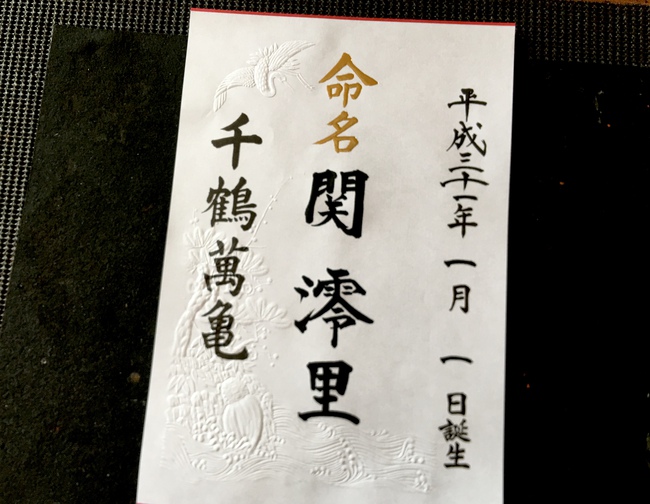 平成三十一年 一月 一日誕生
命名
関 澪里
千鶴萬亀